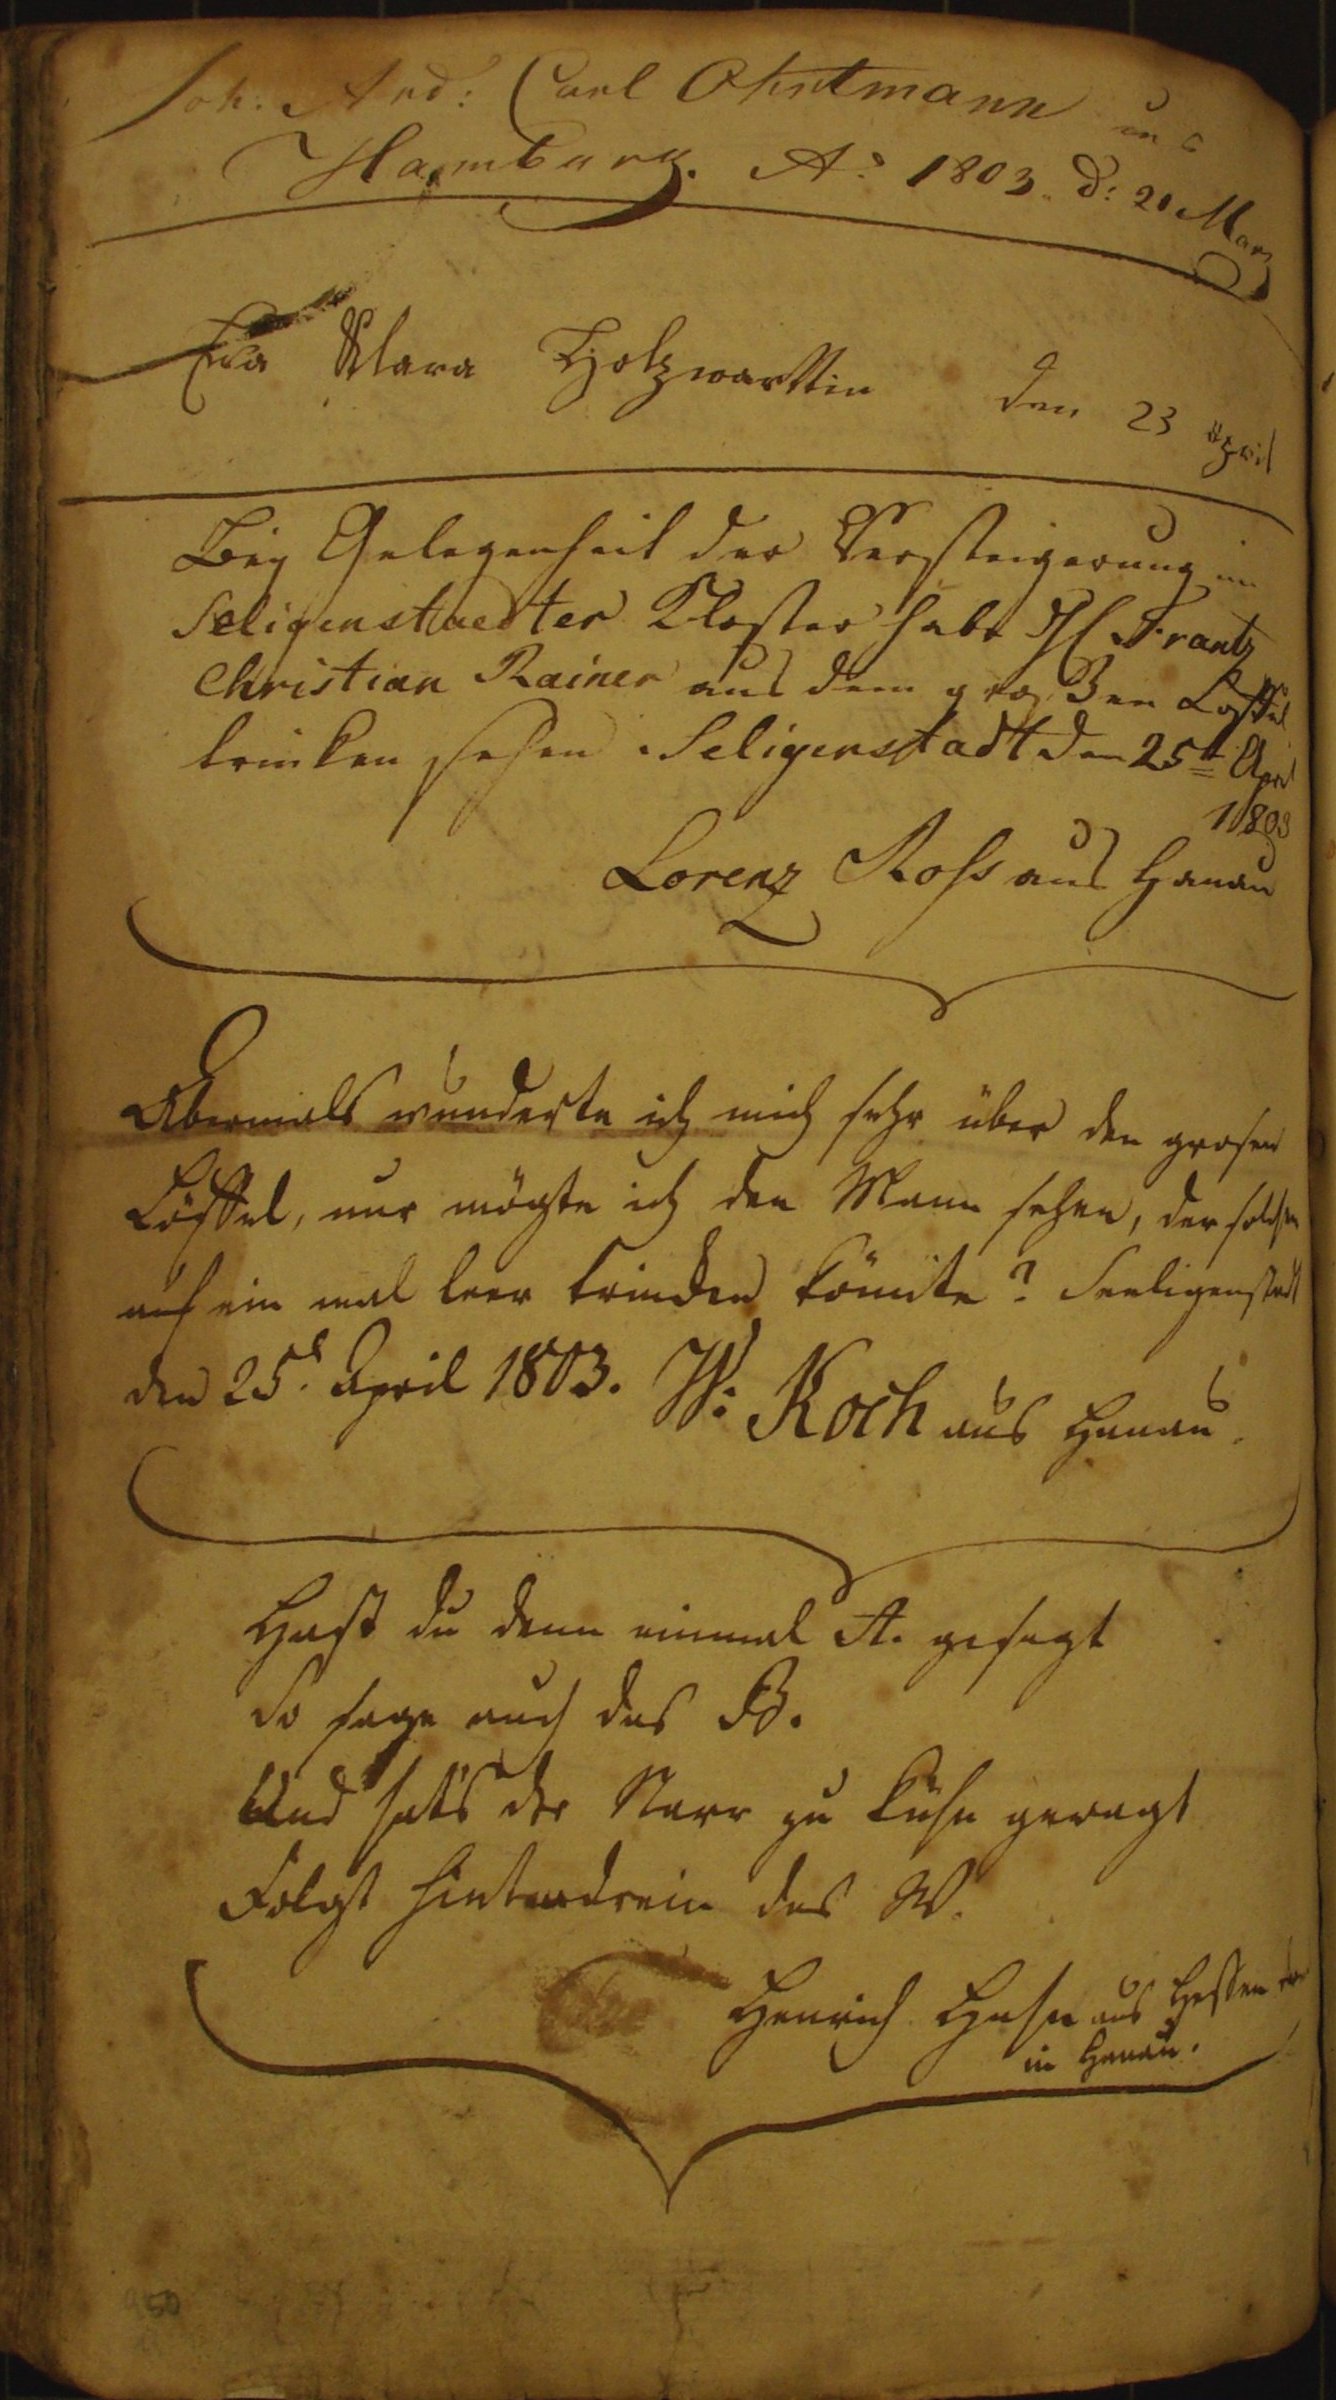 Joh. And: Carl Ohntmann aus
Hamburg. Aº 1803. d: 20 Marz
Eva Klara Holzwarttin den 23 April
Beÿ Gelegenheit der Versteigerung im
Seligenstaedter Kloster habe H Frantz
Christian Rainer aus dem großen Löffel
trinken sehen. Seligenstadt den 25t April
1803
Lorenz Roß aus Hanau
Abermals wunderte ich mich sehr über den grosen
Löffel, nur mögte ich den Mann sehen, der solchen
auf ein mal leer trincken könnte? Seeligenstadt
den 25t. April 1803. W: Koch aus Hanau.
Hast du denn einmal A. gesagt
So sage auch das B.
Und hat's der Narr zu kühn gewagt
Folgt hintendrein das W.
Henrich Hahn aus Hessen
in Hanau.
950